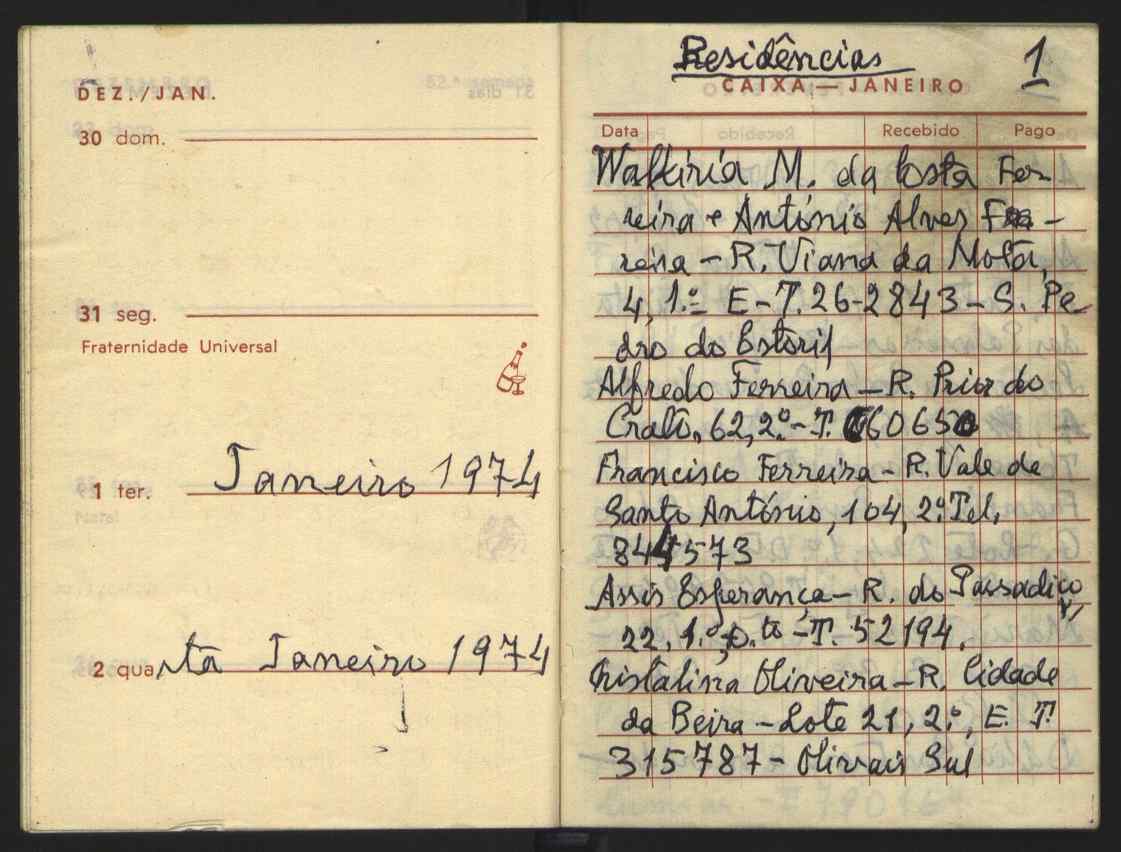 DEZ./JAN.
30 dom.
31 seg.
Fraternidade Universal
1 ter. Janeiro 1974
2 quarta Janeiro 1974
Residências 1
CAIXA — JANEIRO
Data Recebido Pago
Walkiria M. da Costa Fer
reira e António Alves Fer-
reira - R. Viana da Mota,
4, 1.º E - T. 26-2843 - S. Pe
dro do Estoril
Alfredo Ferreira - R. Prior do
Crato, 62, 2.º - T. 660650
Francisco Ferreira - R. Vale de
Santo António, 104, 2.º Tel.
844573
Assis Esperança - R. do Passadiço,
22, 1.º, D.to - T. 52194.
Cristalina Oliveira - R. Cidade
da Beira - Lote 21, 2.º, E. T.
315787 - Olivais Sul